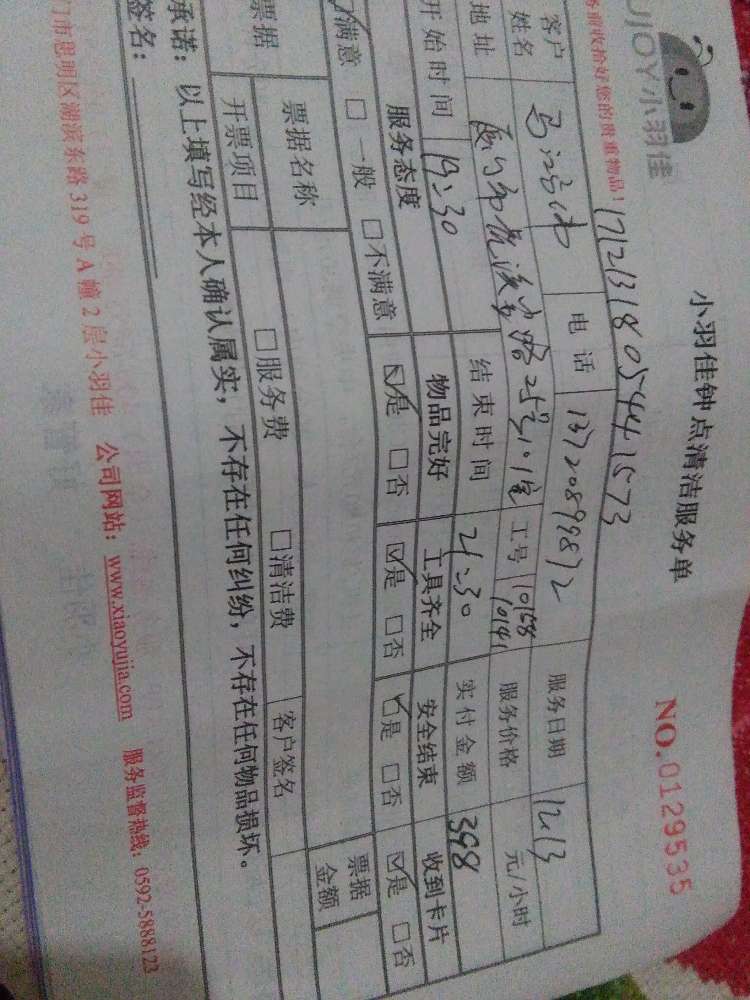 UJOY小羽佳
小羽佳钟点清洁服务单
NO.0129535
务前收拾好您的贵重物品！
1712131805444573
客户姓名 电话 13720899872 服务日期 12.13
地址 厦门市 路25号101室 工号 110158 10141 服务价格 元/小时
开始时间 19:30 结束时间 21:30 实付金额 398
服务态度 物品完好 工具齐全 安全结束 收到卡片
☑满意 □一般 □不满意 ☑是 □否 ☑是 □否 ☑是 □否 ☑是 □否
票据 票据名称 票据金额
开票项目 □服务费 □清洁费 客户签名
承诺：以上填写经本人确认属实，不存在任何纠纷，不存在任何物品损坏。
签名：
门市思明区湖滨东路319号A幢2层小羽佳 公司网站：www.xiaoyujia.com 服务监督热线：0592-5888123